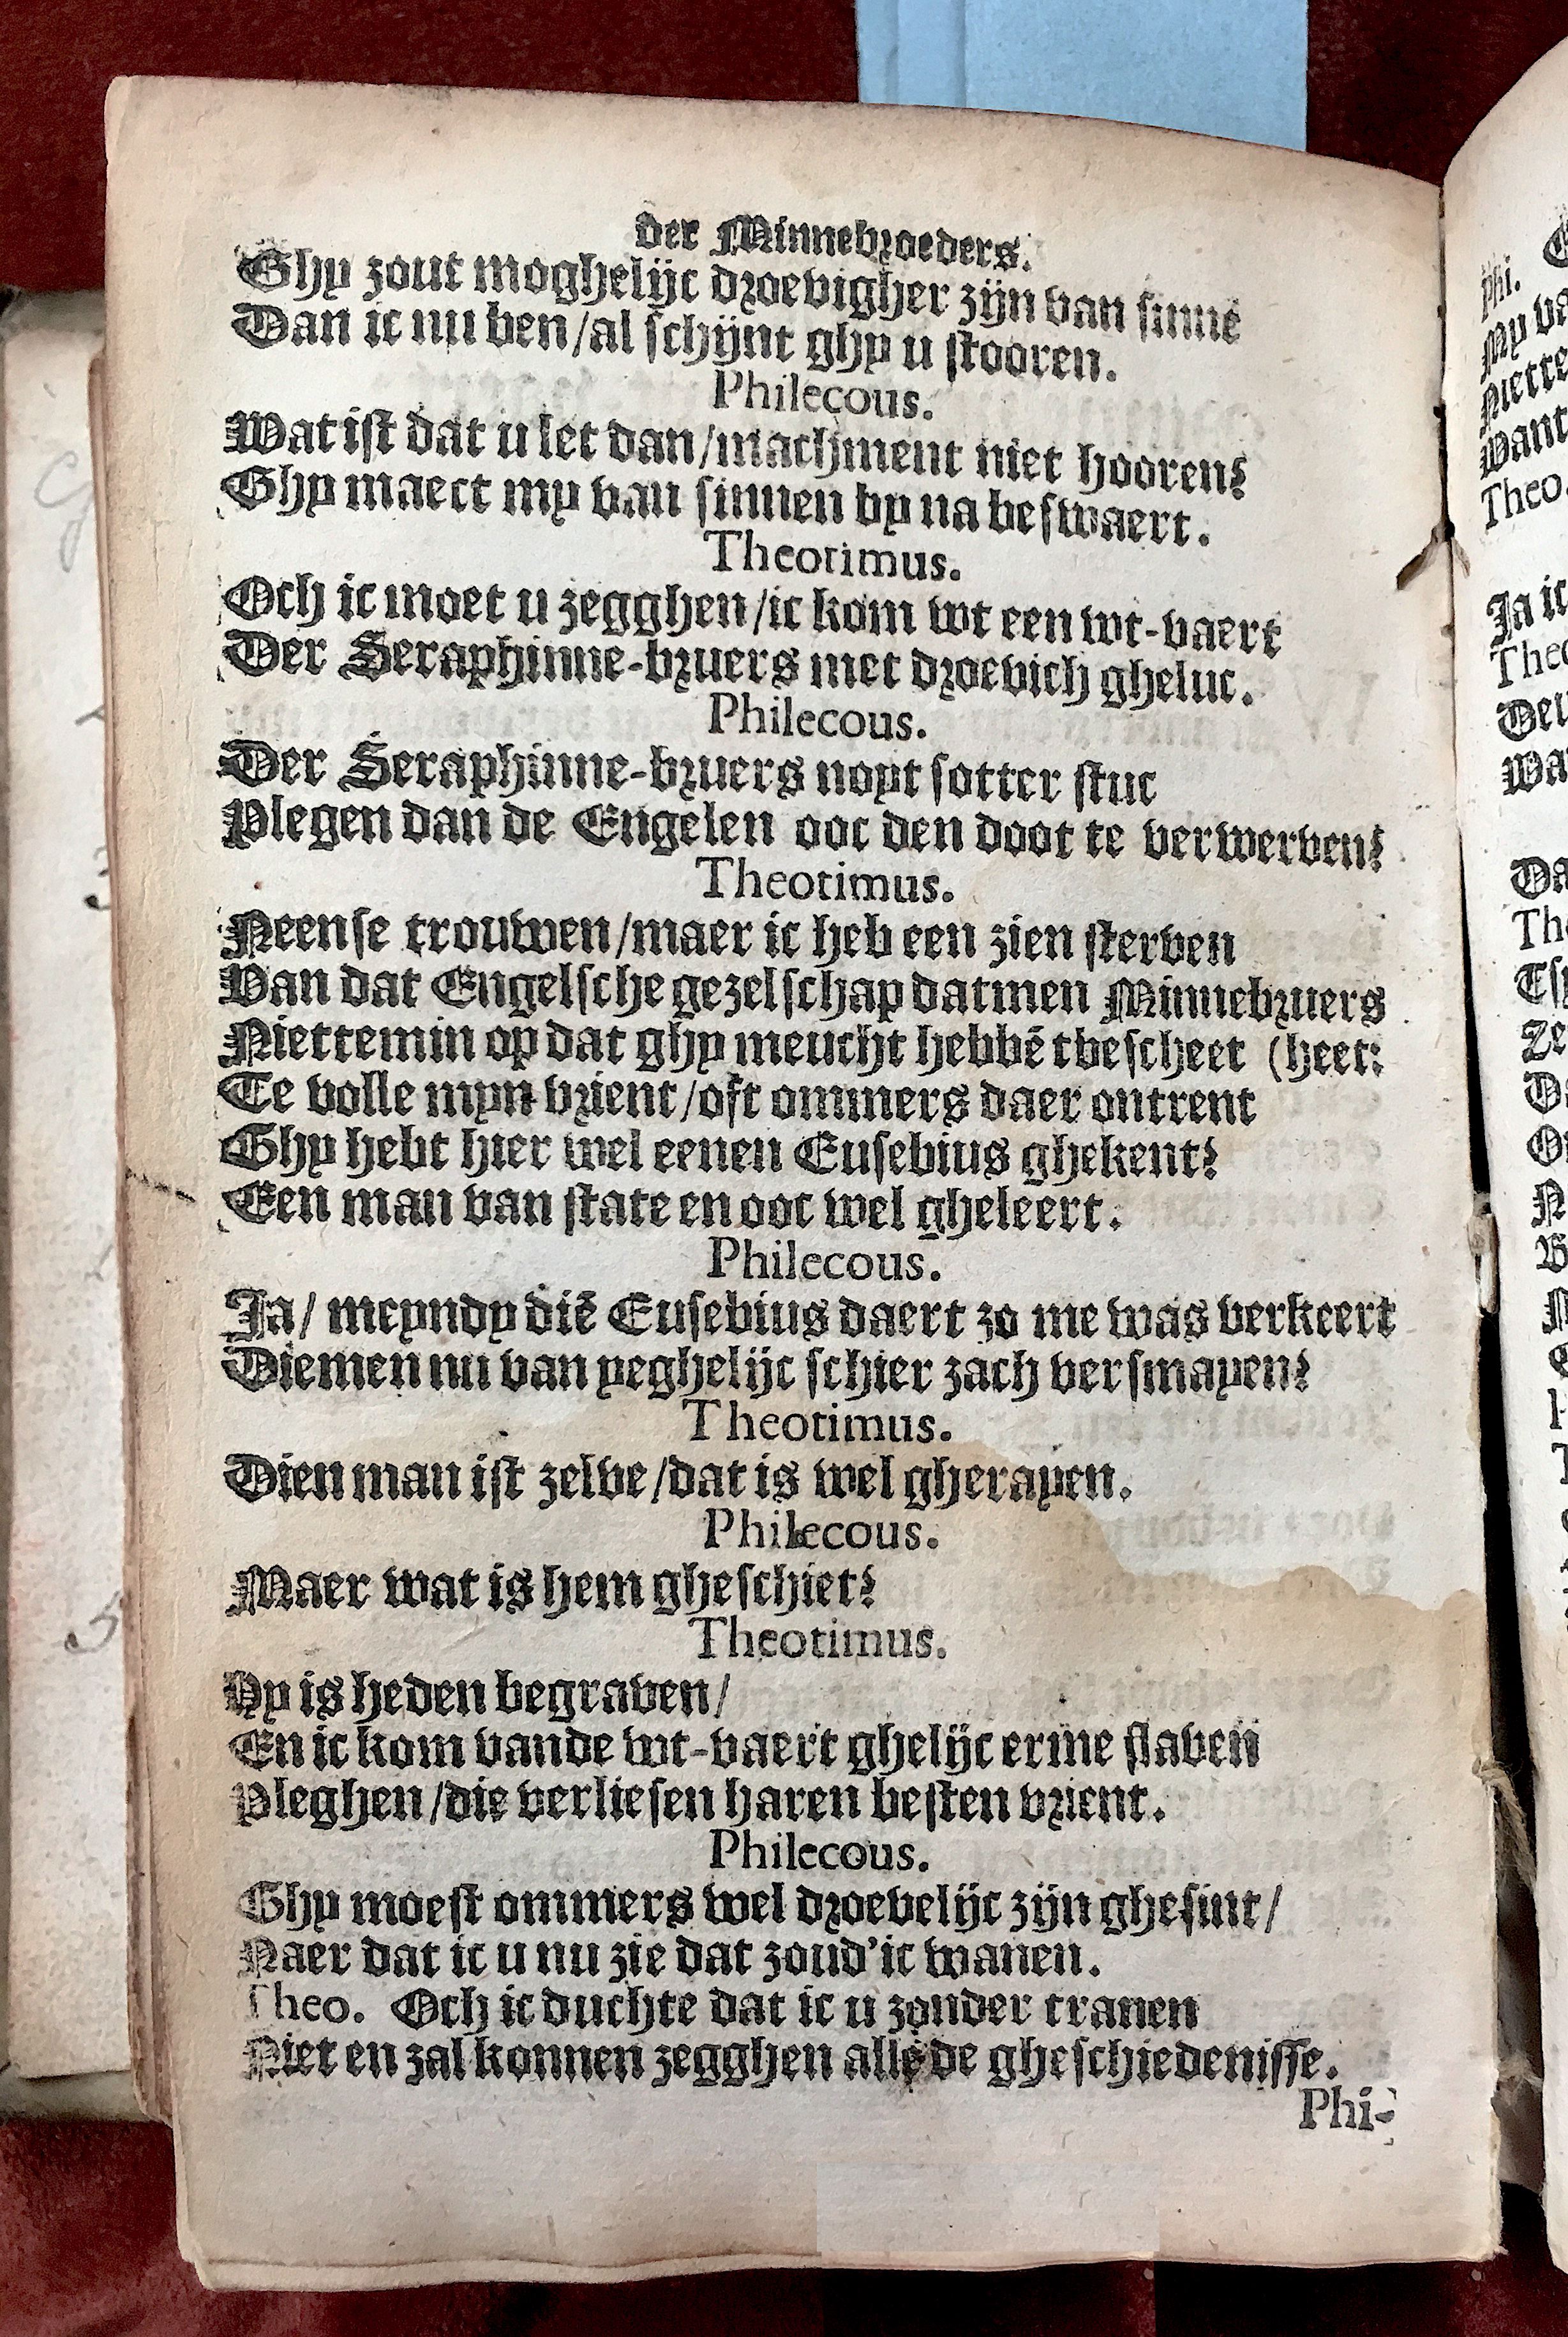 der Minnebroeders.
Ghy zout moghelijc droevigher zijn van sinne
Dan ic nu ben/al schijnt ghy u stooren.
Philecous.
Wat ist dat u let dan/machment niet hooren?
Ghy maect my van sinnen by na beswaert.
Theotimus.
Och ic moet u zegghen/ic kom wt een wt-vaert
Der Seraphinne-bruers met droevich gheluc.
Philecous.
Der Seraphinne-bruers noyt sotter stuc
Plegen dan de Engelen ooc den doot te verwerven?
Theotimus.
Neense trouwen/maer ic heb een zien sterven
Van dat Engelsche gezelschap datmen Minnebruers
Niettemin op dat ghy meucht hebbē tbescheet (heet:
Te volle myn vrient/oft ommers daer ontrent
Ghy hebt hier wel eenen Eusebius ghekent?
Een man van state en ooc wel gheleert.
Philecous.
Ja/ meyndy diē Eusebius daert zo me was verkeert
Diemen nu van yeghelijc schier zach versmayen?
Theotimus.
Dien man ist zelve/dat is wel gherayen.
Philecous.
Maer wat is hem gheschiet?
Theotimus.
Hy is heden begraven/
En ic kom vande wt-vaert ghelijc erme slaven
Pleghen/die verliesen haren besten vrient.
Philecous.
Ghy moest ommers wel droevelijc zijn ghesint/
Naer dat ic u nu zie dat zoud'ic wanen.
Theo. Och ic duchte dat ic u zonder tranen
Niet en zal konnen zegghen alle de gheschiedenisse.
Phi-
Phi.
Theo.
Ja ic